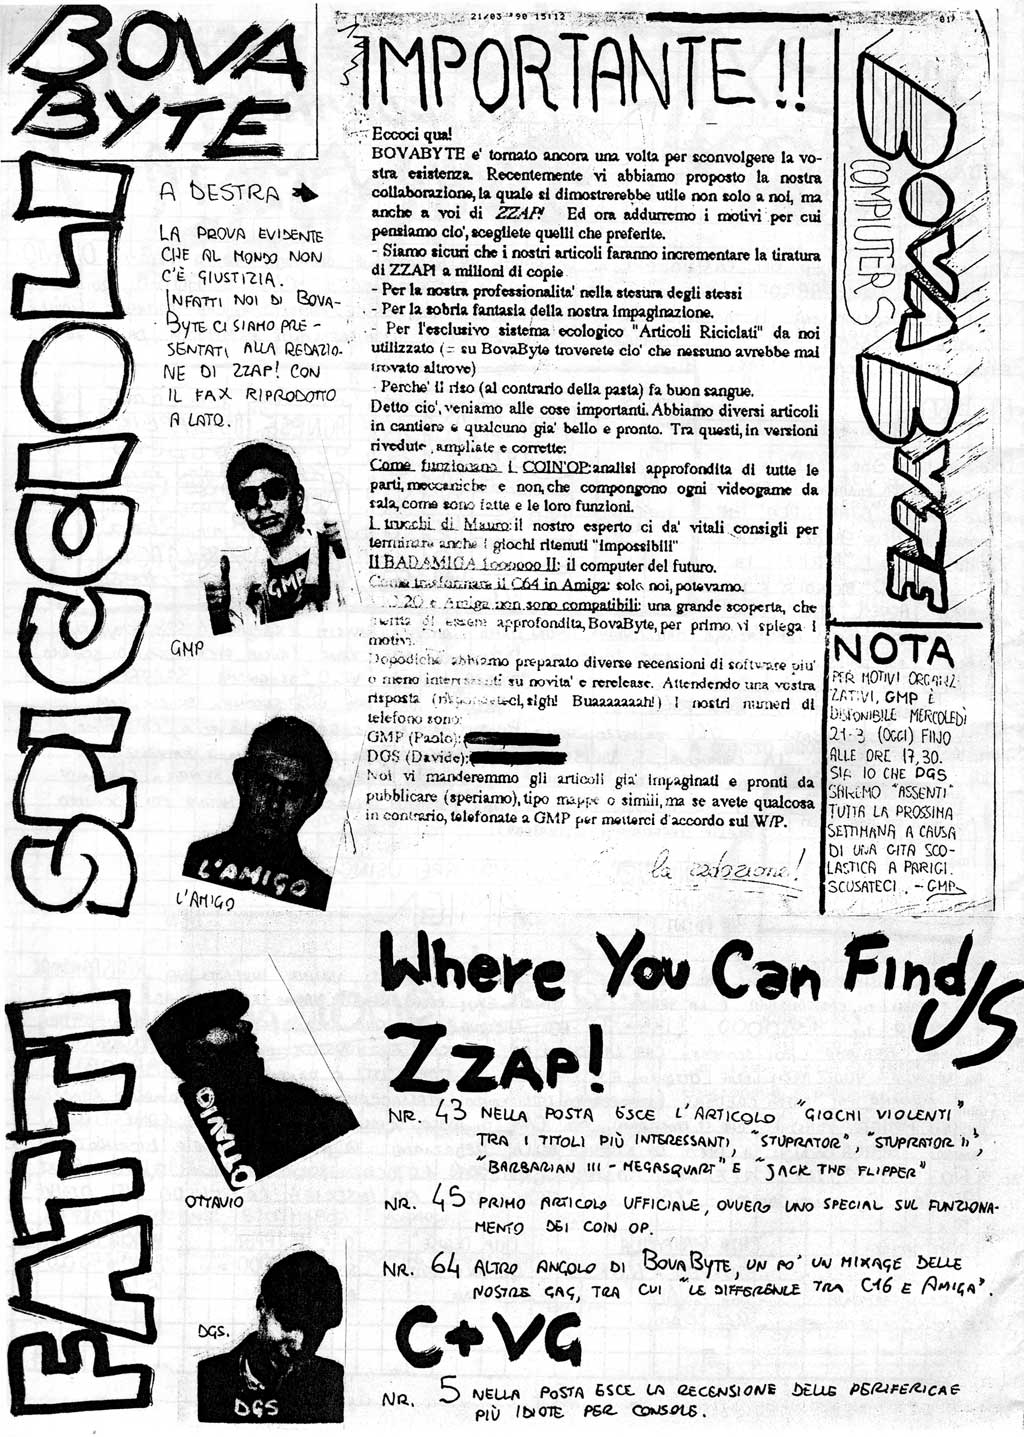 BOVA
BYTE
FATTI SPICCIOLI
A DESTRA
LA PROVA EVIDENTE
CHE AL MONDO NON
C'È GIUSTIZIA.
INFATTI NOI DI BOVA-
BYTE CI SIAMO PRE-
SENTATI ALLA REDAZIO-
NE DI ZZAP! CON
IL FAX RIPRODOTTO
A LATO.
GMP
GMP
L'AMIGO
L'AMIGO
OTTAVIO
OTTAVIO
DGS.
DGS
21/03 '90 15:12
01
IMPORTANTE!!
Eccoci qua!
BOVABYTE e' tornato ancora una volta per sconvolgere la vo-
stra esistenza. Recentemente vi abbiamo proposto la nostra
collaborazione, la quale si dimostrerebbe utile non solo a noi, ma
anche a voi di ZZAP! Ed ora addurremo i motivi per cui
pensiamo cio', scegliete quelli che preferite.
- Siamo sicuri che i nostri articoli faranno incrementare la tiratura
di ZZAP! a milioni di copie
- Per la nostra professionalita' nella stesura degli stessi
- Per la sobria fantasia della nostra impaginazione.
- Per l'esclusivo sistema ecologico "Articoli Riciclati" da noi
utilizzato (= su BovaByte troverete cio' che nessuno avrebbe mai
trovato altrove)
- Perche' il riso (al contrario della pasta) fa buon sangue.
Detto cio', veniamo alle cose importanti. Abbiamo diversi articoli
in cantiere e qualcuno gia' bello e pronto. Tra questi, in versioni
rivedute, ampliate e corrette:
Come funzionano i COIN'OP: analisi approfondita di tutte le
parti, meccaniche e non, che compongono ogni videogame da
sala, come sono fatte e le loro funzioni.
I trucchi di Mauro: il nostro esperto ci da' vitali consigli per
terminare anche i giochi ritenuti "impossibili"
Il BADAMIGA 1oooooo II: il computer del futuro.
Come trasformare il C64 in Amiga: solo noi, potevamo.
20 e Amiga non sono compatibili: una grande scoperta, che
merita di essere approfondita, BovaByte, per primo vi spiega i
motivi.
Dopodiche' abbiamo preparato diverse recensioni di software piu'
o meno interessanti su novita' e rerelease. Attendendo una vostra
risposta (rispondeteci, sigh! Buaaaaaaah!) I nostri numeri di
telefono sono:
GMP (Paolo):
DGS (Davide):
Noi vi manderemmo gli articoli gia' impaginati e pronti da
pubblicare (speriamo), tipo mappe o simili, ma se avete qualcosa
in contrario, telefonate a GMP per metterci d'accordo sul W/P.
la redazione!
BOVA BYTE
COMPUTERS
NOTA
PER MOTIVI ORGANIZ-
ZATIVI, GMP È
DISPONIBILE MERCOLEDÌ
21-3 (OGGI) FINO
ALLE ORE 17,30.
SIA IO CHE DGS
SAREMO "ASSENTI"
TUTTA LA PROSSIMA
SETTIMANA A CAUSA
DI UNA GITA SCO-
LASTICA A PARIGI.
SCUSATECI. -GMP
Where You Can Find US
ZZAP!
NR. 43 NELLA POSTA ESCE L'ARTICOLO "GIOCHI VIOLENTI"
TRA I TITOLI PIÙ INTERESSANTI, "STUPRATOR", "STUPRATOR II",
"BARBARIAN III - MEGASQUART" E "JACK THE FLIPPER"
NR. 45 PRIMO ARTICOLO UFFICIALE, OVVERO UNO SPECIAL SUL FUNZIONA-
MENTO DEI COIN OP.
NR. 64 ALTRO ANGOLO DI BOVABYTE, UN PO' UN MIXAGE DELLE
NOSTRE GAG, TRA CUI "LE DIFFERENZE TRA C16 E AMIGA".
C+VG
NR. 5 NELLA POSTA ESCE LA RECENSIONE DELLE PERIFERICHE
PIÙ IDIOTE PER CONSOLE.